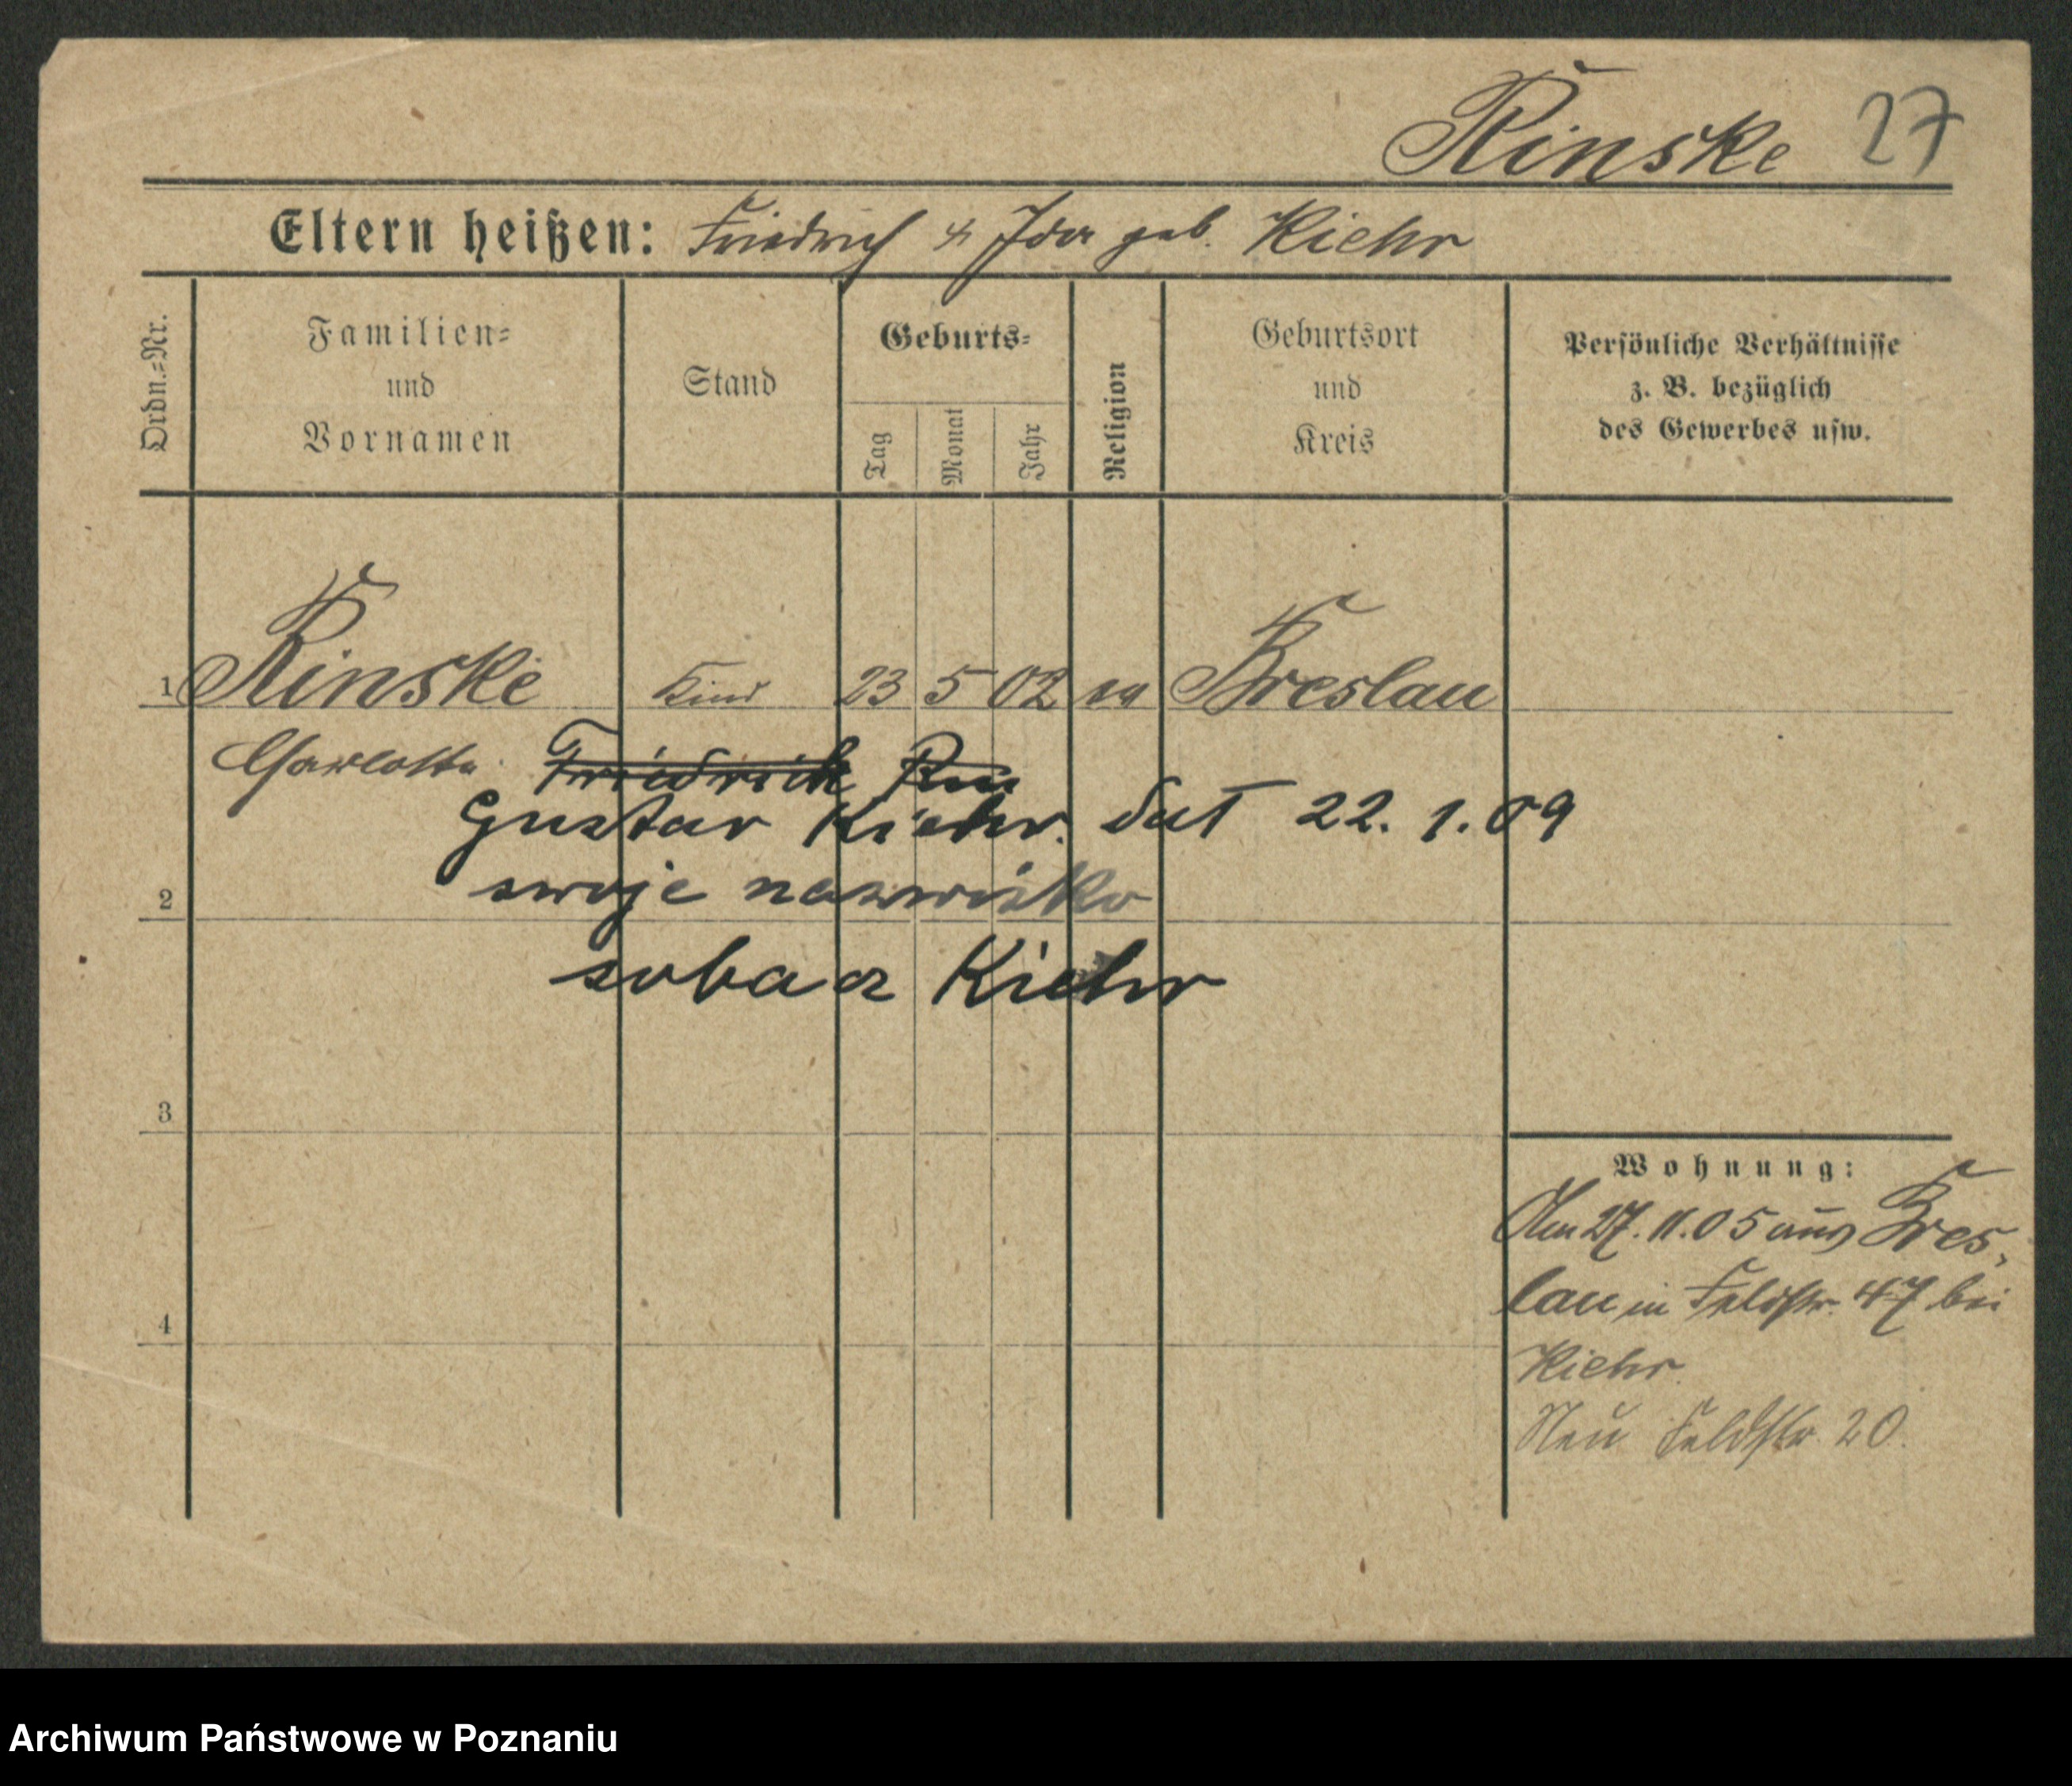 Rinske 27
Eltern heißen: Friedrich & Ida geb. Kiehr
Ordn.-Nr.
Familien-
und
Vornamen
Stand
Geburts-
Tag
Monat
Jahr
Religion
Geburtsort
und
Kreis
Persönliche Verhältnisse
z. B. bezüglich
des Gewerbes usw.
1 Rinske Kind 23 5 02 ev Breslau
Charlotte Friedrich Rin
Gustav Kiehr dał 22. 1. 09
swoje nazwisko
2
zobacz Kiehr
3
Wohnung:
Am 27. 11. 05 aus Bres-
lau in Feldstr. 47 bei
4
Kiehr.
Neu Feldstr. 20.
Archiwum Państwowe w Poznaniu